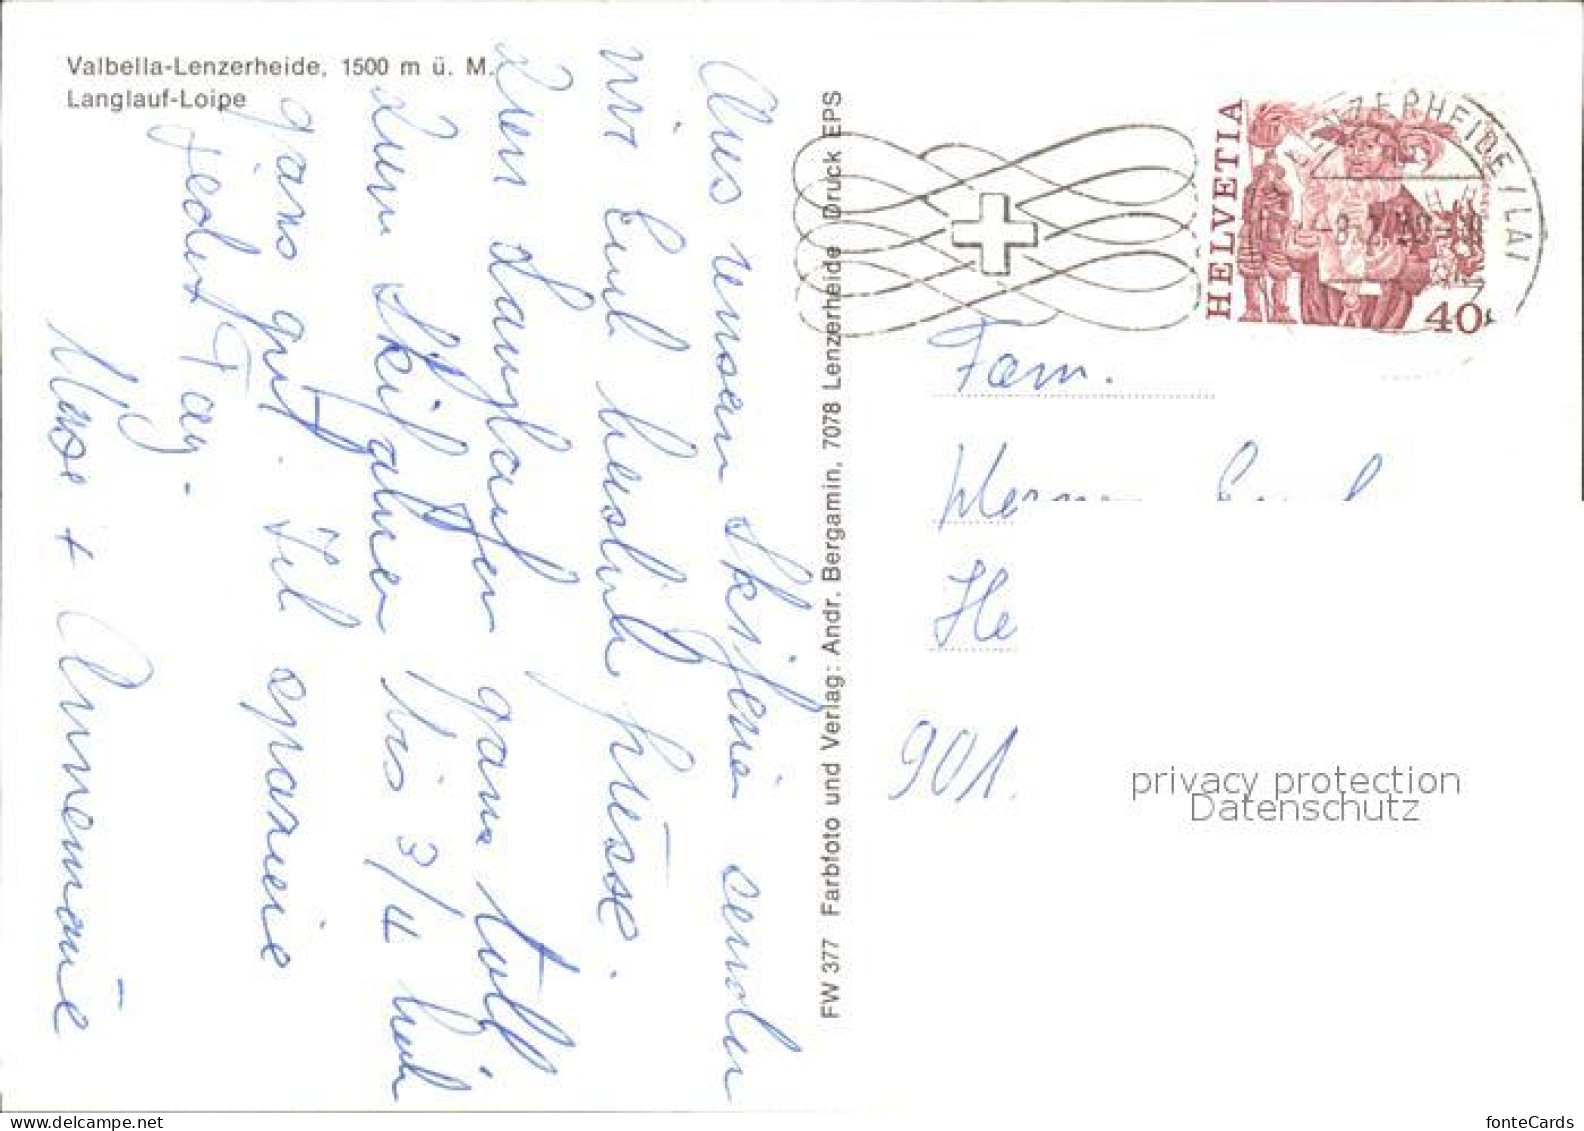 Valbella-Lenzerheide, 1500 m ü. M.
Langlauf-Loipe
Aus unsern Skiferien senden
wir Euch herzlich Grüsse.
Zum Langlaufen ganz toll
zum Skifahren bis 3/4 hoch
ganz gut. Viel
jeden Tag.
+ Annemarie
FW 377 Farbfoto und Verlag: Andr. Bergamin, 7078 Lenzerheide Druck EPS
HELVETIA
40
LENZERHEIDE / LAI
Fam.
He
901.
privacy protection
Datenschutz
fonteCards